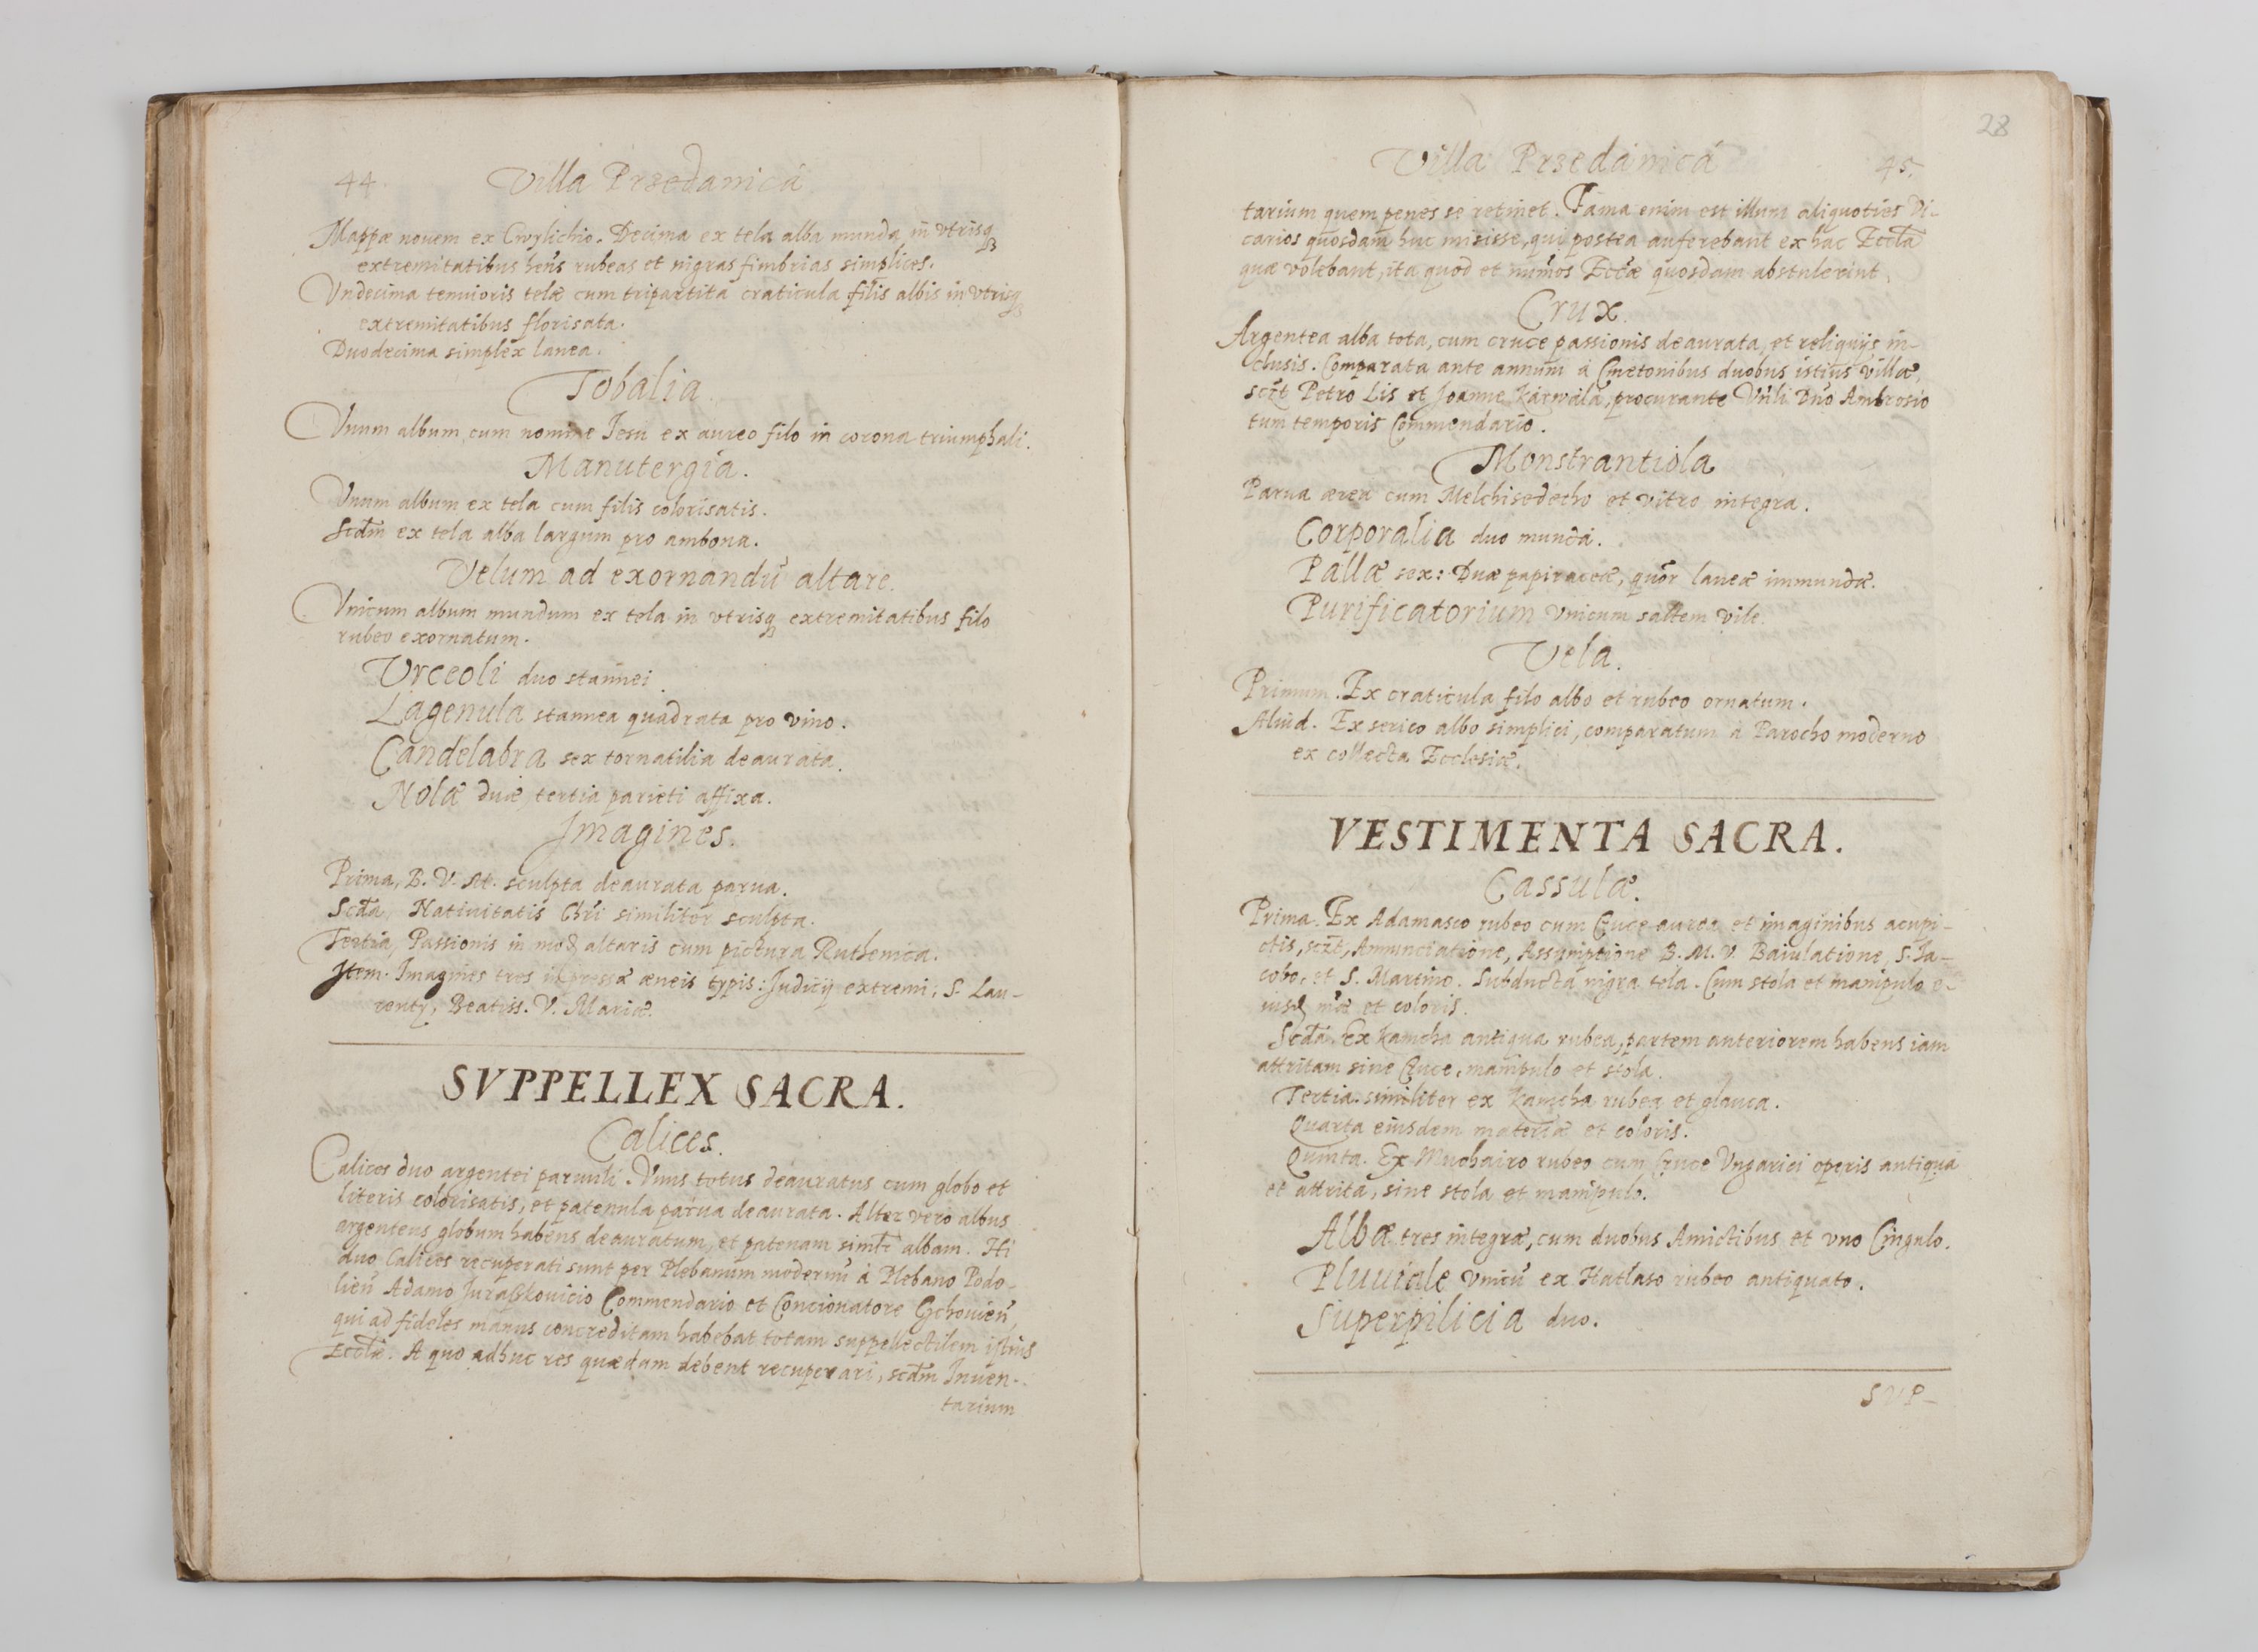 44.
Villa Przedanica
Mappæ nouem ex Cwylichio. Decima ex tela alba munda in vtrisq3
extremitatibus hen̄s rubeas et nigras fimbrias simplices.
Vndecima tenuioris telæ cum tripartita craticula filis albis in vtrisq3
extremitatibus florisata.
Duodecima simplex lanea.
Tobalia.
Vnum album cum nomine Iesu ex aureo filo in corona triumphali.
Manutergia.
Vnum album ex tela cum filis colorisatis.
Scdm̄ ex tela alba largum pro ambona.
Velum ad exornandū altare.
Vnicum album mundum ex tela in vtrisq3 extremitatibus filo
rubeo exornatum.
Vrceoli duo stannei.
Lagenula stannea quadrata pro vino.
Candelabra sex tornatilia deaurata.
Nolæ duæ, tertia parieti affixa.
Imagines.
Prima, B. V. M. sculpta deaurata parua.
Scdā, Natiuitatis Chr̄i similiter sculpta.
Tertia, Passionis in mod altaris cum pictura Ruthenica.
Item. Imagines tres impressæ æneis typis: Judicij extremi, S. Lau-
rentij, Beatiss. V. Mariæ.
SVPPELLEX SACRA.
Calices.
Calices duo argentei paruuli. Vnus totus deauratus cum globo et
literis colorisatis, et patenula parua deaurata. Alter vero albus
argenteus globum habens deauratum, et patenam simlr̄ albam. Hi
duo Calices recuperati sunt per Plebanum modernū à Plebano Podo-
lien̄ Adamo Juraszkouicio Commendario et Concionatore Gchouien̄,
qui ad fideles manus concreditam habebat totam suppellectilem istius
Ecclæ. A quo adhuc res quædam debent recuperari, scdm̄ Inuen-
tarium
28
Villa Przedanica
45.
tarium quem penes se retinet. Fama enim est illum aliquoties Vi-
carios quosdam huc misisse, qui postea auferebant ex hac Eccl̄a
quæ volebant, ita quod et num̄os Eccl̄æ quosdam abstulerint.
Crux.
Argentea alba tota, cum cruce passionis deaurata, et reliquijs in-
clusis. Comparata ante annum à Cmetonibus duobus istius villæ,
sclt̄ Petro Lis et Joanne Karwala, procurante Vn̄li Dn̄o Ambrosio
tum temporis Commendario.
Monstrantiola
Parua ærea cum Melchisedecho et vitro integra.
Corporalia duo munda.
Pallæ sex: Duæ papiraceæ, quor laneæ immundæ.
Purificatorium vnicum saltem vile.
Vela.
Primum. Ex craticula filo albo et rubeo ornatum.
Aliud. Ex serico albo simplici, comparatum à Parocho moderno
ex collecta Ecclesiæ.
VESTIMENTA SACRA.
Cassulæ.
Prima. Ex Adamasco rubeo cum Cruce aurea et imaginibus acupi-
ctis, sclt̄, Annunciatione, Assumptione B. M. V. Baiulatione, S. Ja-
cobo, et S. Martino. Subducta nigra tela. Cum stola et manipulo e-
iusd mæ et coloris.
Scdā. Ex Kamcha antiqua rubea, partem anteriorem habens iam
attritam sine Cruce, manipulo et stola.
Tertia. similiter ex Kamcha rubea et glauca.
Quarta eiusdem materiæ et coloris.
Quinta. Ex Muchairo rubeo cum Cruce Vngarici operis antiqua
et attrita, sine stola et manipulo.
Albæ tres integræ, cum duobus Amictibus et vno Cingulo.
Pluuiale vnicū ex Hatłaso rubeo antiquato.
Superpilicia duo.
SVP-